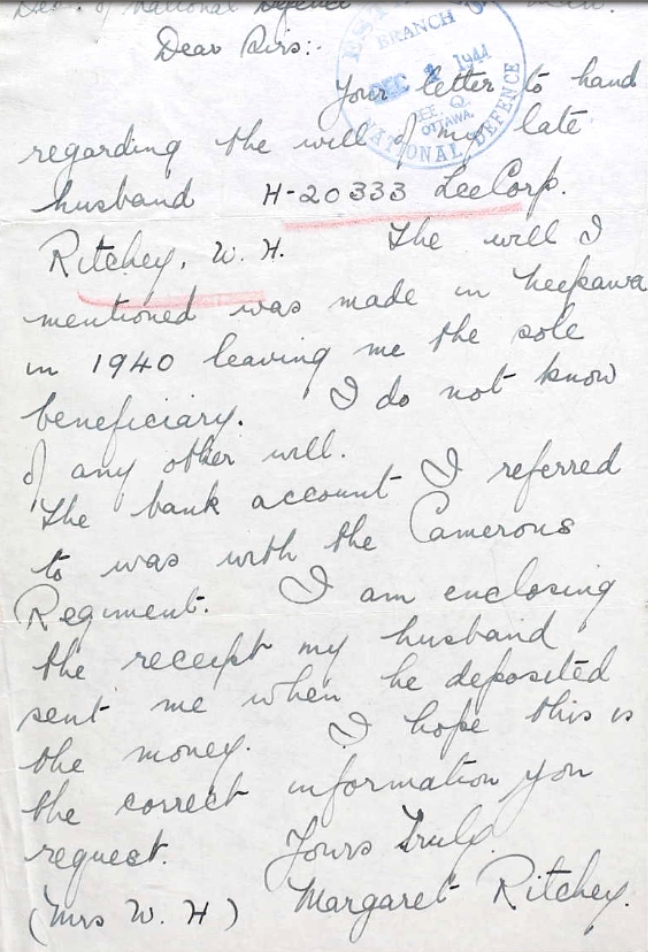 Dept. of National Defence
Dear Sirs:-
Your letter to hand
regarding the will of my late
husband H-20333 LeeCorp.
Ritchey, W. H. The will I
mentioned was made in Neepawa
in 1940 leaving me the sole
beneficiary. I do not know
of any other will.
The bank account I referred
to was with the Camerons
Regiment. I am enclosing
the receipt my husband
sent me when he deposited
the money. I hope this is
the correct information you
request. Yours Truly.
(Mrs W. H) Margaret Ritchey.
BRANCH
DEC 1944
OTTAWA.
NATIONAL DEFENCE